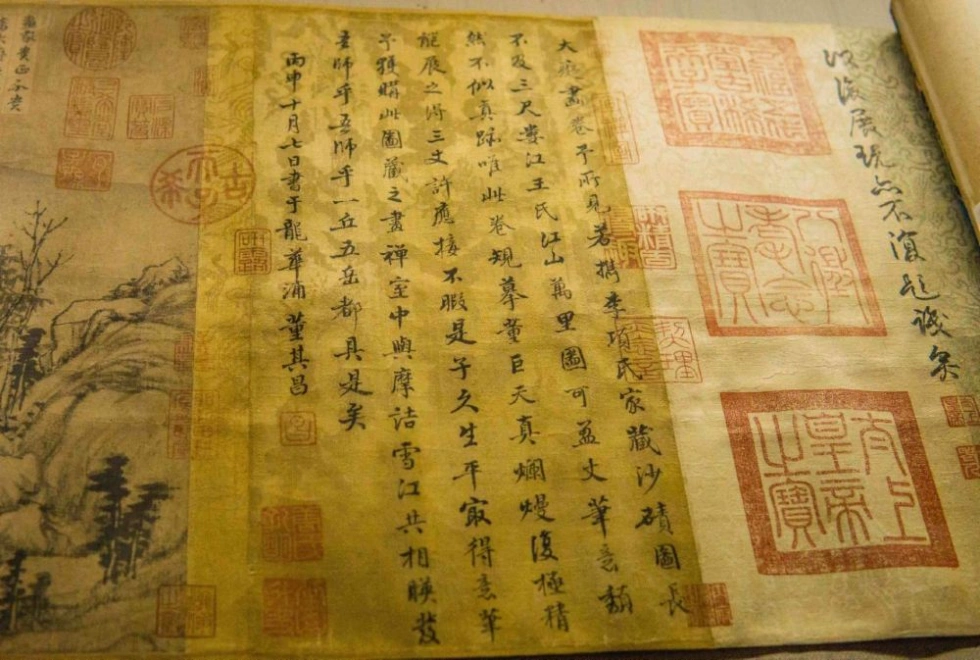 以後展玩亦不復題識矣
八徵耄念之寶
太上皇帝之寶
大癡畫卷予所見若檇李項氏家藏沙磧圖長
不及三尺婁江王氏江山萬里圖可盈丈筆意頹
然不似真跡唯此卷規摹董巨天真爛熳復極精
能展之得三丈許應接不暇是子久生平最得意筆
予獲購此圖藏之畫禪室中與摩詰雪江共相映發
吾師乎吾師乎一丘五岳都具是矣
丙申十月七日書于龍華浦 董其昌
古稀天子